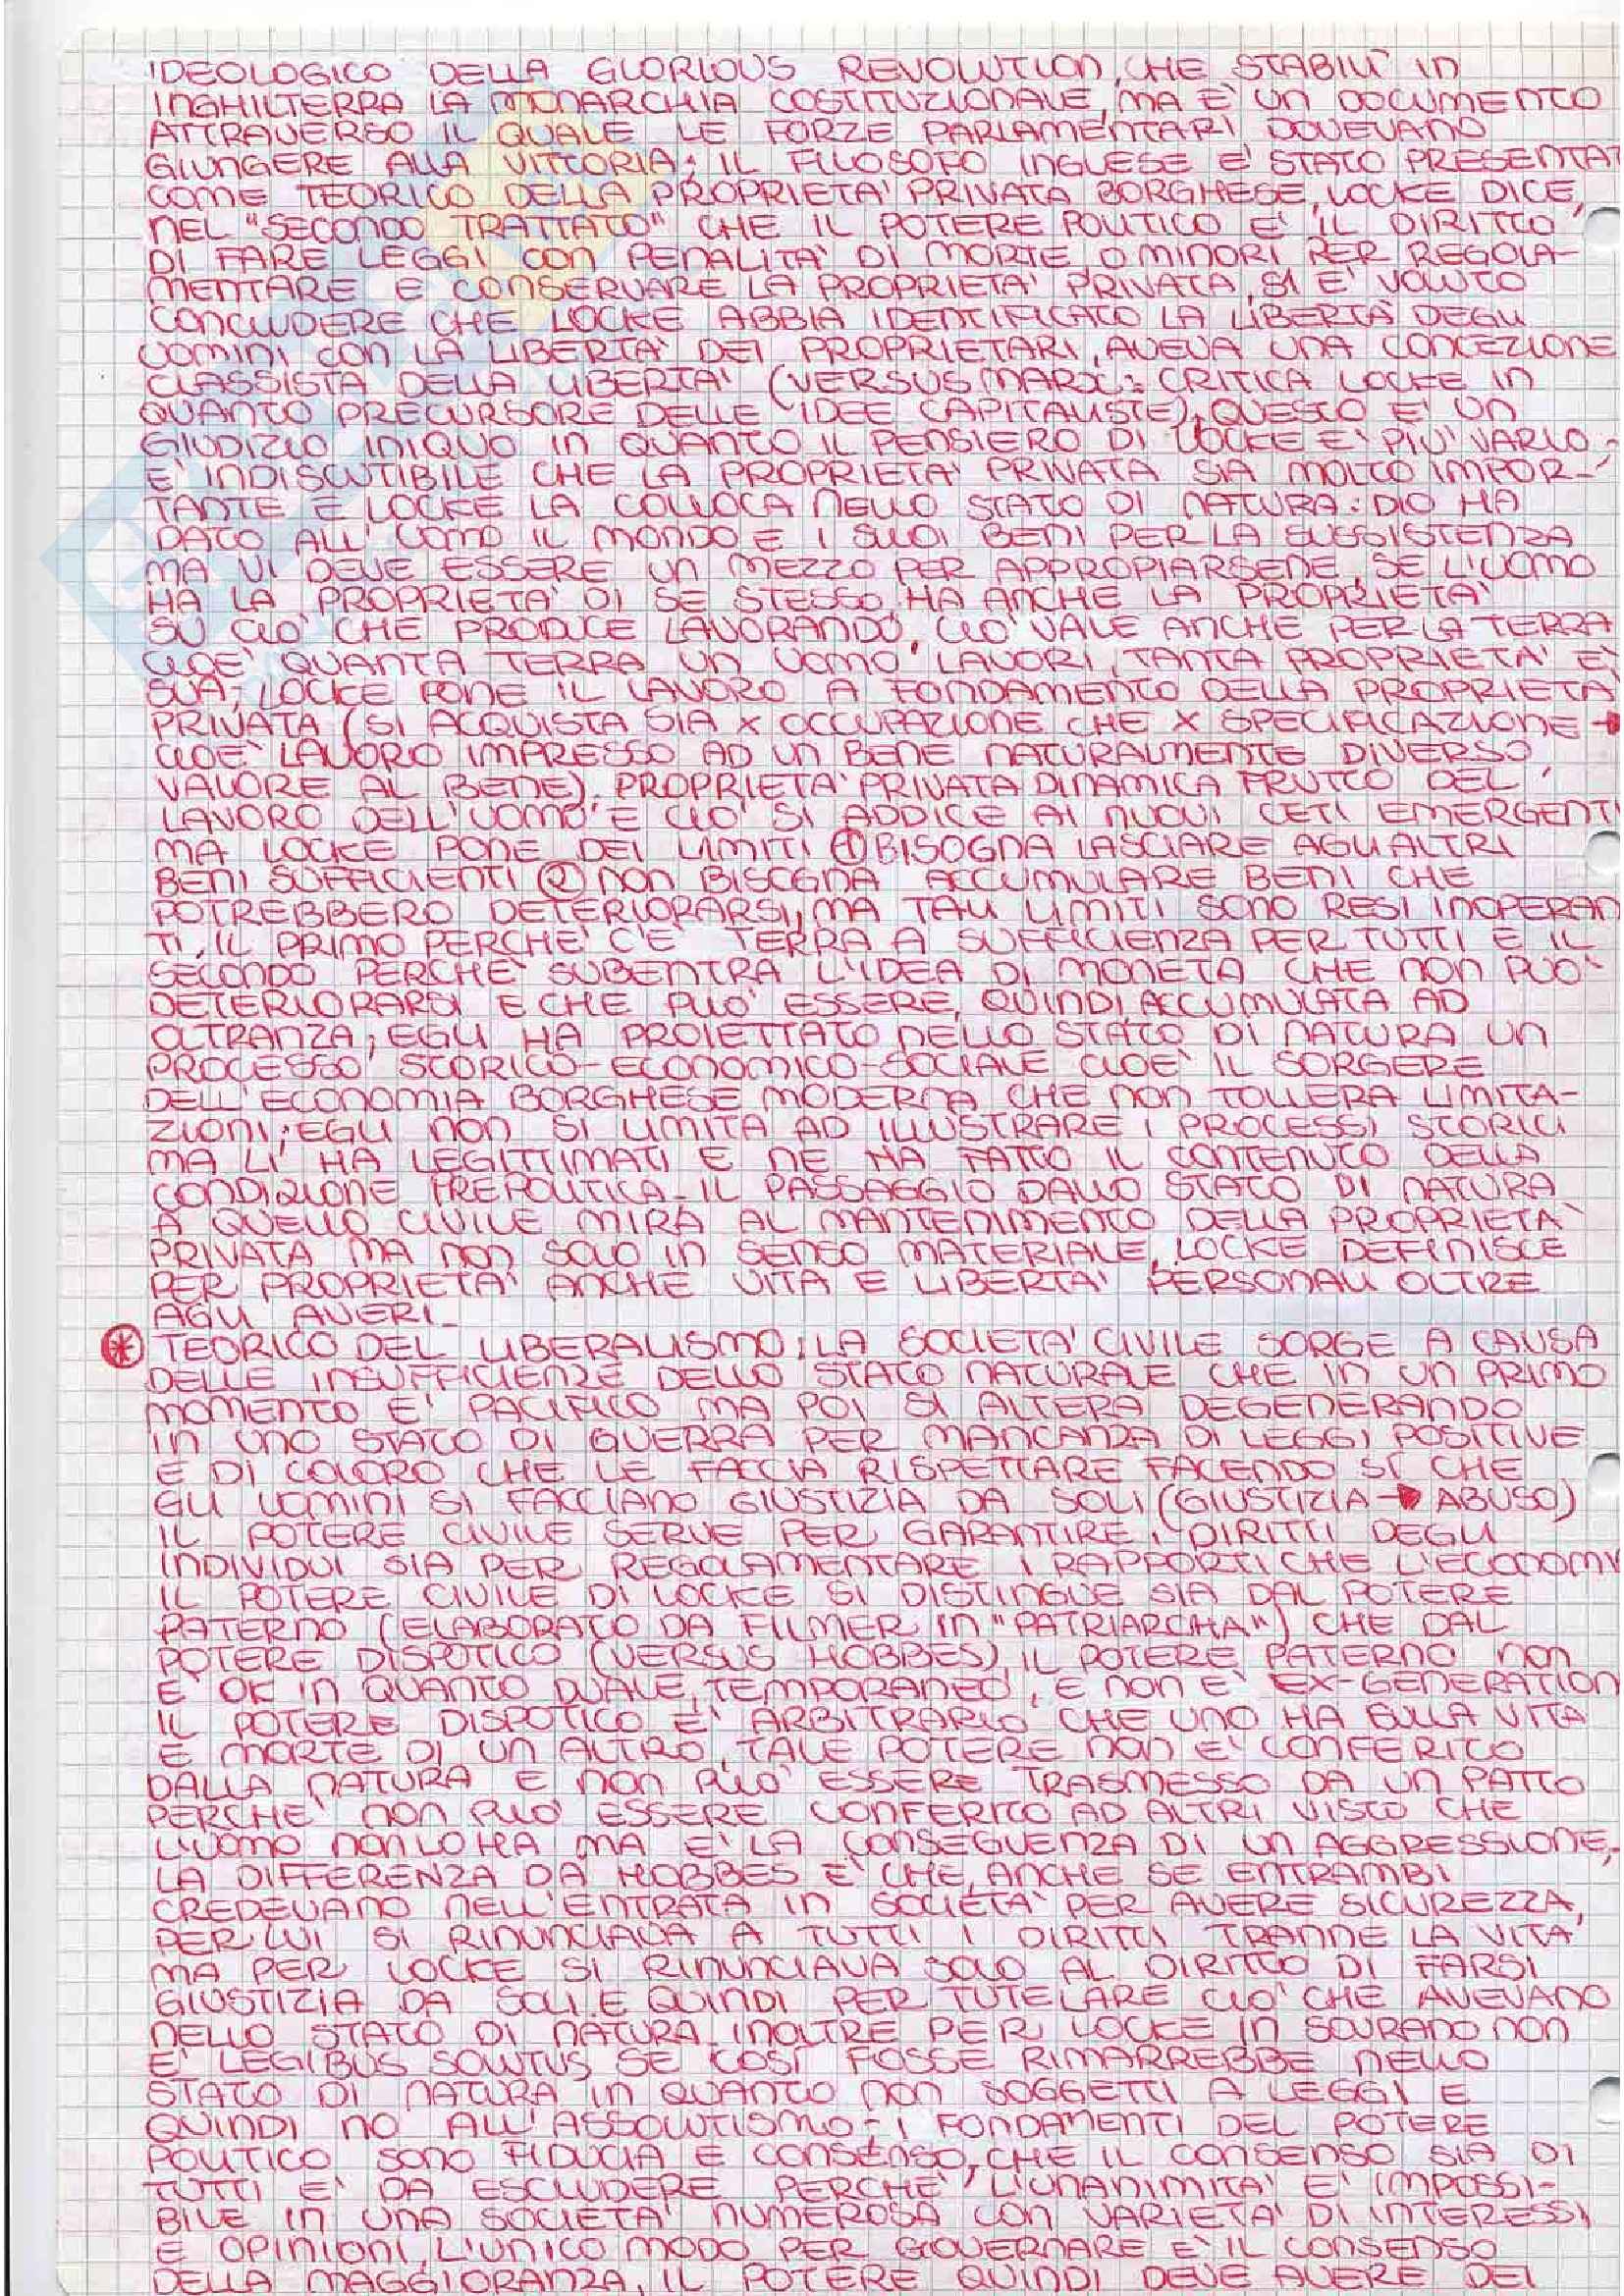 IDEOLOGICO DELLA GLORIOUS REVOLUTION, CHE STABILÌ IN
INGHILTERRA LA MONARCHIA COSTITUZIONALE, MA E' UN DOCUMENTO
ATTRAVERSO IL QUALE LE FORZE PARLAMENTARI DOVEVANO
GIUNGERE ALLA VITTORIA; IL FILOSOFO INGLESE E' STATO PRESENTAT
COME TEORICO DELLA PROPRIETA' PRIVATA BORGHESE, LOCKE DICE,
NEL "SECONDO TRATTATO" CHE IL POTERE POLITICO E' IL DIRITTO
DI FARE LEGGI CON PENALITA' DI MORTE O MINORI PER REGOLA-
MENTARE E CONSERVARE LA PROPRIETA' PRIVATA, SI E' VOLUTO
CONCLUDERE CHE LOCKE ABBIA IDENTIFICATO LA LIBERTÀ DEGLI
UOMINI CON LA LIBERTA' DEI PROPRIETARI, AVEVA UNA CONCEZIONE
CLASSISTA DELLA LIBERTA' (VERSUS MARX: CRITICA LOCKE IN
QUANTO PRECURSORE DELLE IDEE CAPITALISTE), QUESTO E' UN
GIUDIZIO INIQUO IN QUANTO IL PENSIERO DI LOCKE E' PIU' VARIO -
E' INDISCUTIBILE CHE LA PROPRIETA' PRIVATA SIA MOLTO IMPOR-
TANTE E LOCKE LA COLLOCA NELLO STATO DI NATURA: DIO HA
DATO ALL'UOMO IL MONDO E I SUOI BENI PER LA SUSSISTENZA
MA VI DEVE ESSERE UN MEZZO PER APPROPIARSENE, SE L'UOMO
HA LA PROPRIETA' DI SE STESSO, HA ANCHE LA PROPRIETA'
SU CIO' CHE PRODUCE LAVORANDO, CIO' VALE ANCHE PER LA TERRA
CIOE' QUANTA TERRA UN UOMO LAVORI, TANTA PROPRIETA' E'
SUA; LOCKE PONE IL LAVORO A FONDAMENTO DELLA PROPRIETA'
PRIVATA (SI ACQUISTA SIA X OCCUPAZIONE CHE X SPECIFICAZIONE →
CIOE' LAVORO IMPRESSO AD UN BENE NATURALMENTE DIVERSO
VALORE AL BENE). PROPRIETA' PRIVATA DINAMICA FRUTTO DEL
LAVORO DELL'UOMO E CIO' SI ADDICE AI NUOVI CETI EMERGENTI
MA LOCKE PONE DEI LIMITI ① BISOGNA LASCIARE AGLI ALTRI
BENI SUFFICIENTI ② NON BISOGNA ACCUMULARE BENI CHE
POTREBBERO DETERIORARSI, MA TALI LIMITI SONO RESI INOPERAN
TI, IL PRIMO PERCHE' C'E' TERRA A SUFFICIENZA PER TUTTI E IL
SECONDO PERCHE' SUBENTRA L'IDEA DI MONETA CHE NON PUO'
DETERIORARSI E CHE PUO' ESSERE, QUINDI, ACCUMULATA AD
OLTRANZA; EGLI HA PROIETTATO NELLO STATO DI NATURA UN
PROCESSO STORICO-ECONOMICO-SOCIALE CIOE' IL SORGERE
DELL'ECONOMIA BORGHESE MODERNA CHE NON TOLLERA LIMITA-
ZIONI; EGLI NON SI LIMITA AD ILLUSTRARE I PROCESSI STORICI
MA LI HA LEGITTIMATI E NE HA FATTO IL CONTENUTO DELLA
CONDIZIONE PREPOLITICA - IL PASSAGGIO DALLO STATO DI NATURA
A QUELLO CIVILE MIRA AL MANTENIMENTO DELLA PROPRIETA'
PRIVATA MA NON SOLO IN SENSO MATERIALE, LOCKE DEFINISCE
PER PROPRIETA' ANCHE VITA E LIBERTA' PERSONALI OLTRE
AGLI AVERI -
* TEORICO DEL LIBERALISMO: LA SOCIETA' CIVILE SORGE A CAUSA
DELLE INSUFFICIENZE DELLO STATO NATURALE CHE IN UN PRIMO
MOMENTO E' PACIFICO MA POI SI ALTERA DEGENERANDO
IN UNO STATO DI GUERRA PER MANCANZA DI LEGGI POSITIVE
E DI COLORO CHE LE FACCIA RISPETTARE FACENDO SÌ CHE
GLI UOMINI SI FACCIANO GIUSTIZIA DA SOLI (GIUSTIZIA → ABUSO)
IL POTERE CIVILE SERVE PER GARANTIRE I DIRITTI DEGLI
INDIVIDUI SIA PER REGOLAMENTARE I RAPPORTI CHE L'ECONOMI
IL POTERE CIVILE DI LOCKE SI DISTINGUE SIA DAL POTERE
PATERNO (ELABORATO DA FILMER IN "PATRIARCHA") CHE DAL
POTERE DISPOTICO (VERSUS HOBBES) IL POTERE PATERNO NON
E' OK IN QUANTO DUALE, TEMPORANEO, E NON E' EX-GENERATION
IL POTERE DISPOTICO E' ARBITRARIO CHE UNO HA SULLA VITA
E MORTE DI UN ALTRO, TALE POTERE NON E' CONFERITO
DALLA NATURA E NON PUO' ESSERE TRASMESSO DA UN PATTO
PERCHE' NON PUO' ESSERE CONFERITO AD ALTRI VISTO CHE
L'UOMO NON LO HA MA E' LA CONSEGUENZA DI UN AGGRESSIONE;
LA DIFFERENZA DA HOBBES E' CHE, ANCHE SE ENTRAMBI
CREDEVANO NELL'ENTRATA IN SOCIETA' PER AVERE SICUREZZA,
PER LUI SI RINUNCIAVA A TUTTI I DIRITTI TRANNE LA VITA
MA PER LOCKE SI RINUNCIAVA SOLO AL DIRITTO DI FARSI
GIUSTIZIA DA SOLI E QUINDI PER TUTELARE CIO' CHE AVEVANO
NELLO STATO DI NATURA. INOLTRE PER LOCKE IN SOVRANO NON
E' LEGIBUS SOLUTUS, SE COSI' FOSSE RIMARREBBE NELLO
STATO DI NATURA IN QUANTO NON SOGGETTI A LEGGI E
QUINDI NO ALL'ASSOLUTISMO - I FONDAMENTI DEL POTERE
POLITICO SONO FIDUCIA E CONSENSO, CHE IL CONSENSO SIA DI
TUTTI E' DA ESCLUDERE PERCHE' L'UNANIMITA' E' IMPOSSI-
BILE IN UNA SOCIETA' NUMEROSA CON VARIETA' DI INTERESSI
E OPINIONI, L'UNICO MODO PER GOVERNARE E' IL CONSENSO
DELLA MAGGIORANZA, IL POTERE QUINDI DEVE AVERE DEI